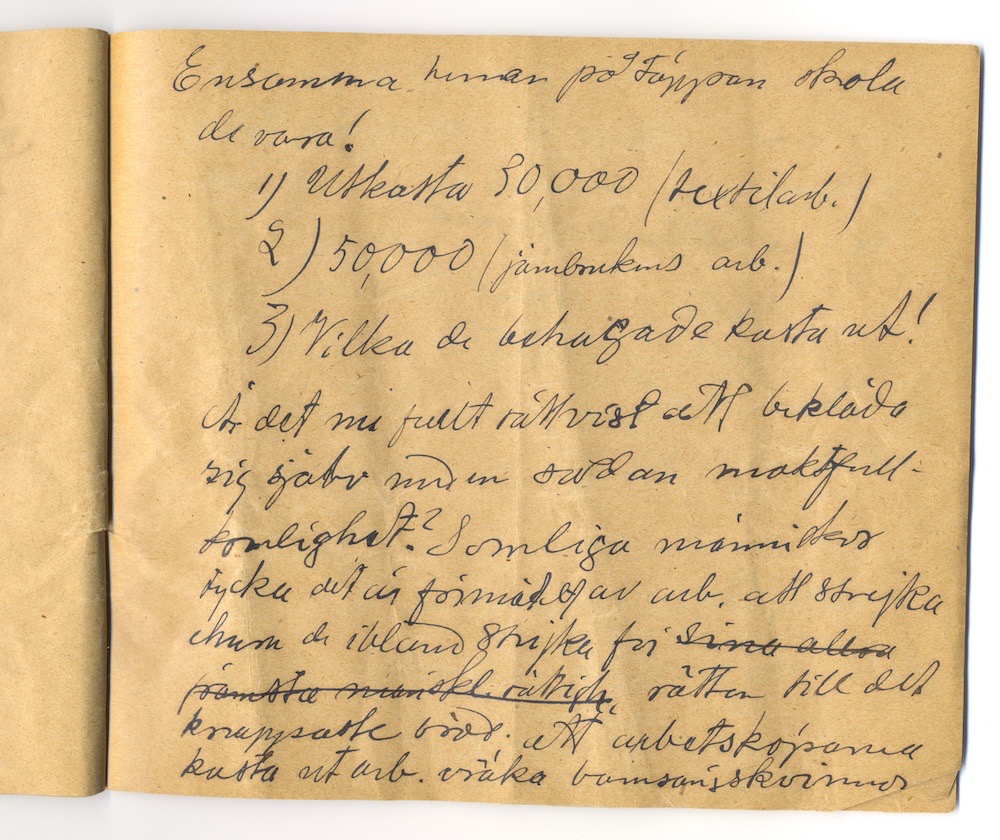 Ensamma herrar på Täppan skola
de vara!
1) Utkasta 30,000 (textilarb.)
2) 50,000 (järnbrukens arb.)
3) Vilka de behagade kasta ut!
Är det nu fullt rättvist att bekläda
sig själv med en sådan maktfull-
komlighet? Somliga människor
tycka det är förmätet av arb. att strejka
ehuru de ibland strejka för sina allra
främsta mänskl. rättigh. rätten till det
knappaste bröd. Att arbetsköparna
kasta ut arb. vräka barnsängskvinnor